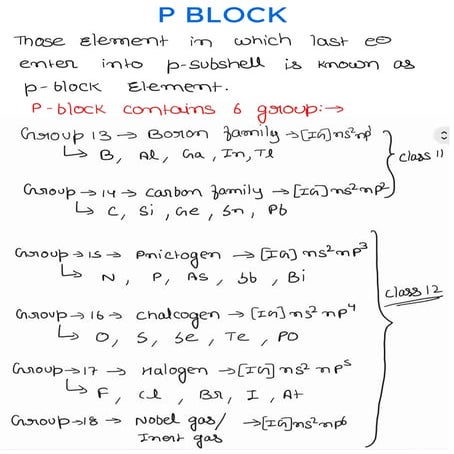 P BLOCK
Those Element in which last e⊖
enter into p-subshell is known as
p-block Element.
P-block contains 6 group:→
Group 13 → Boron family → [IG]ns²np¹
↳ B, Al, Ga, In, Tl
class 11
Group → 14 → carbon family → [IG]ns²np²
↳ C, Si, Ge, Sn, Pb
Group → 15 → Pnictogen → [IG]ns²np³
↳ N, P, As, Sb, Bi
class 12
Group → 16 → chalcogen → [IG]ns²np⁴
↳ O, S, Se, Te, PO
Group → 17 → Halogen → [IG]ns² np⁵
↳ F, Cl, Br, I, At
Group → 18 → Nobel gas/ → [IG]ns²np6
Inert gas